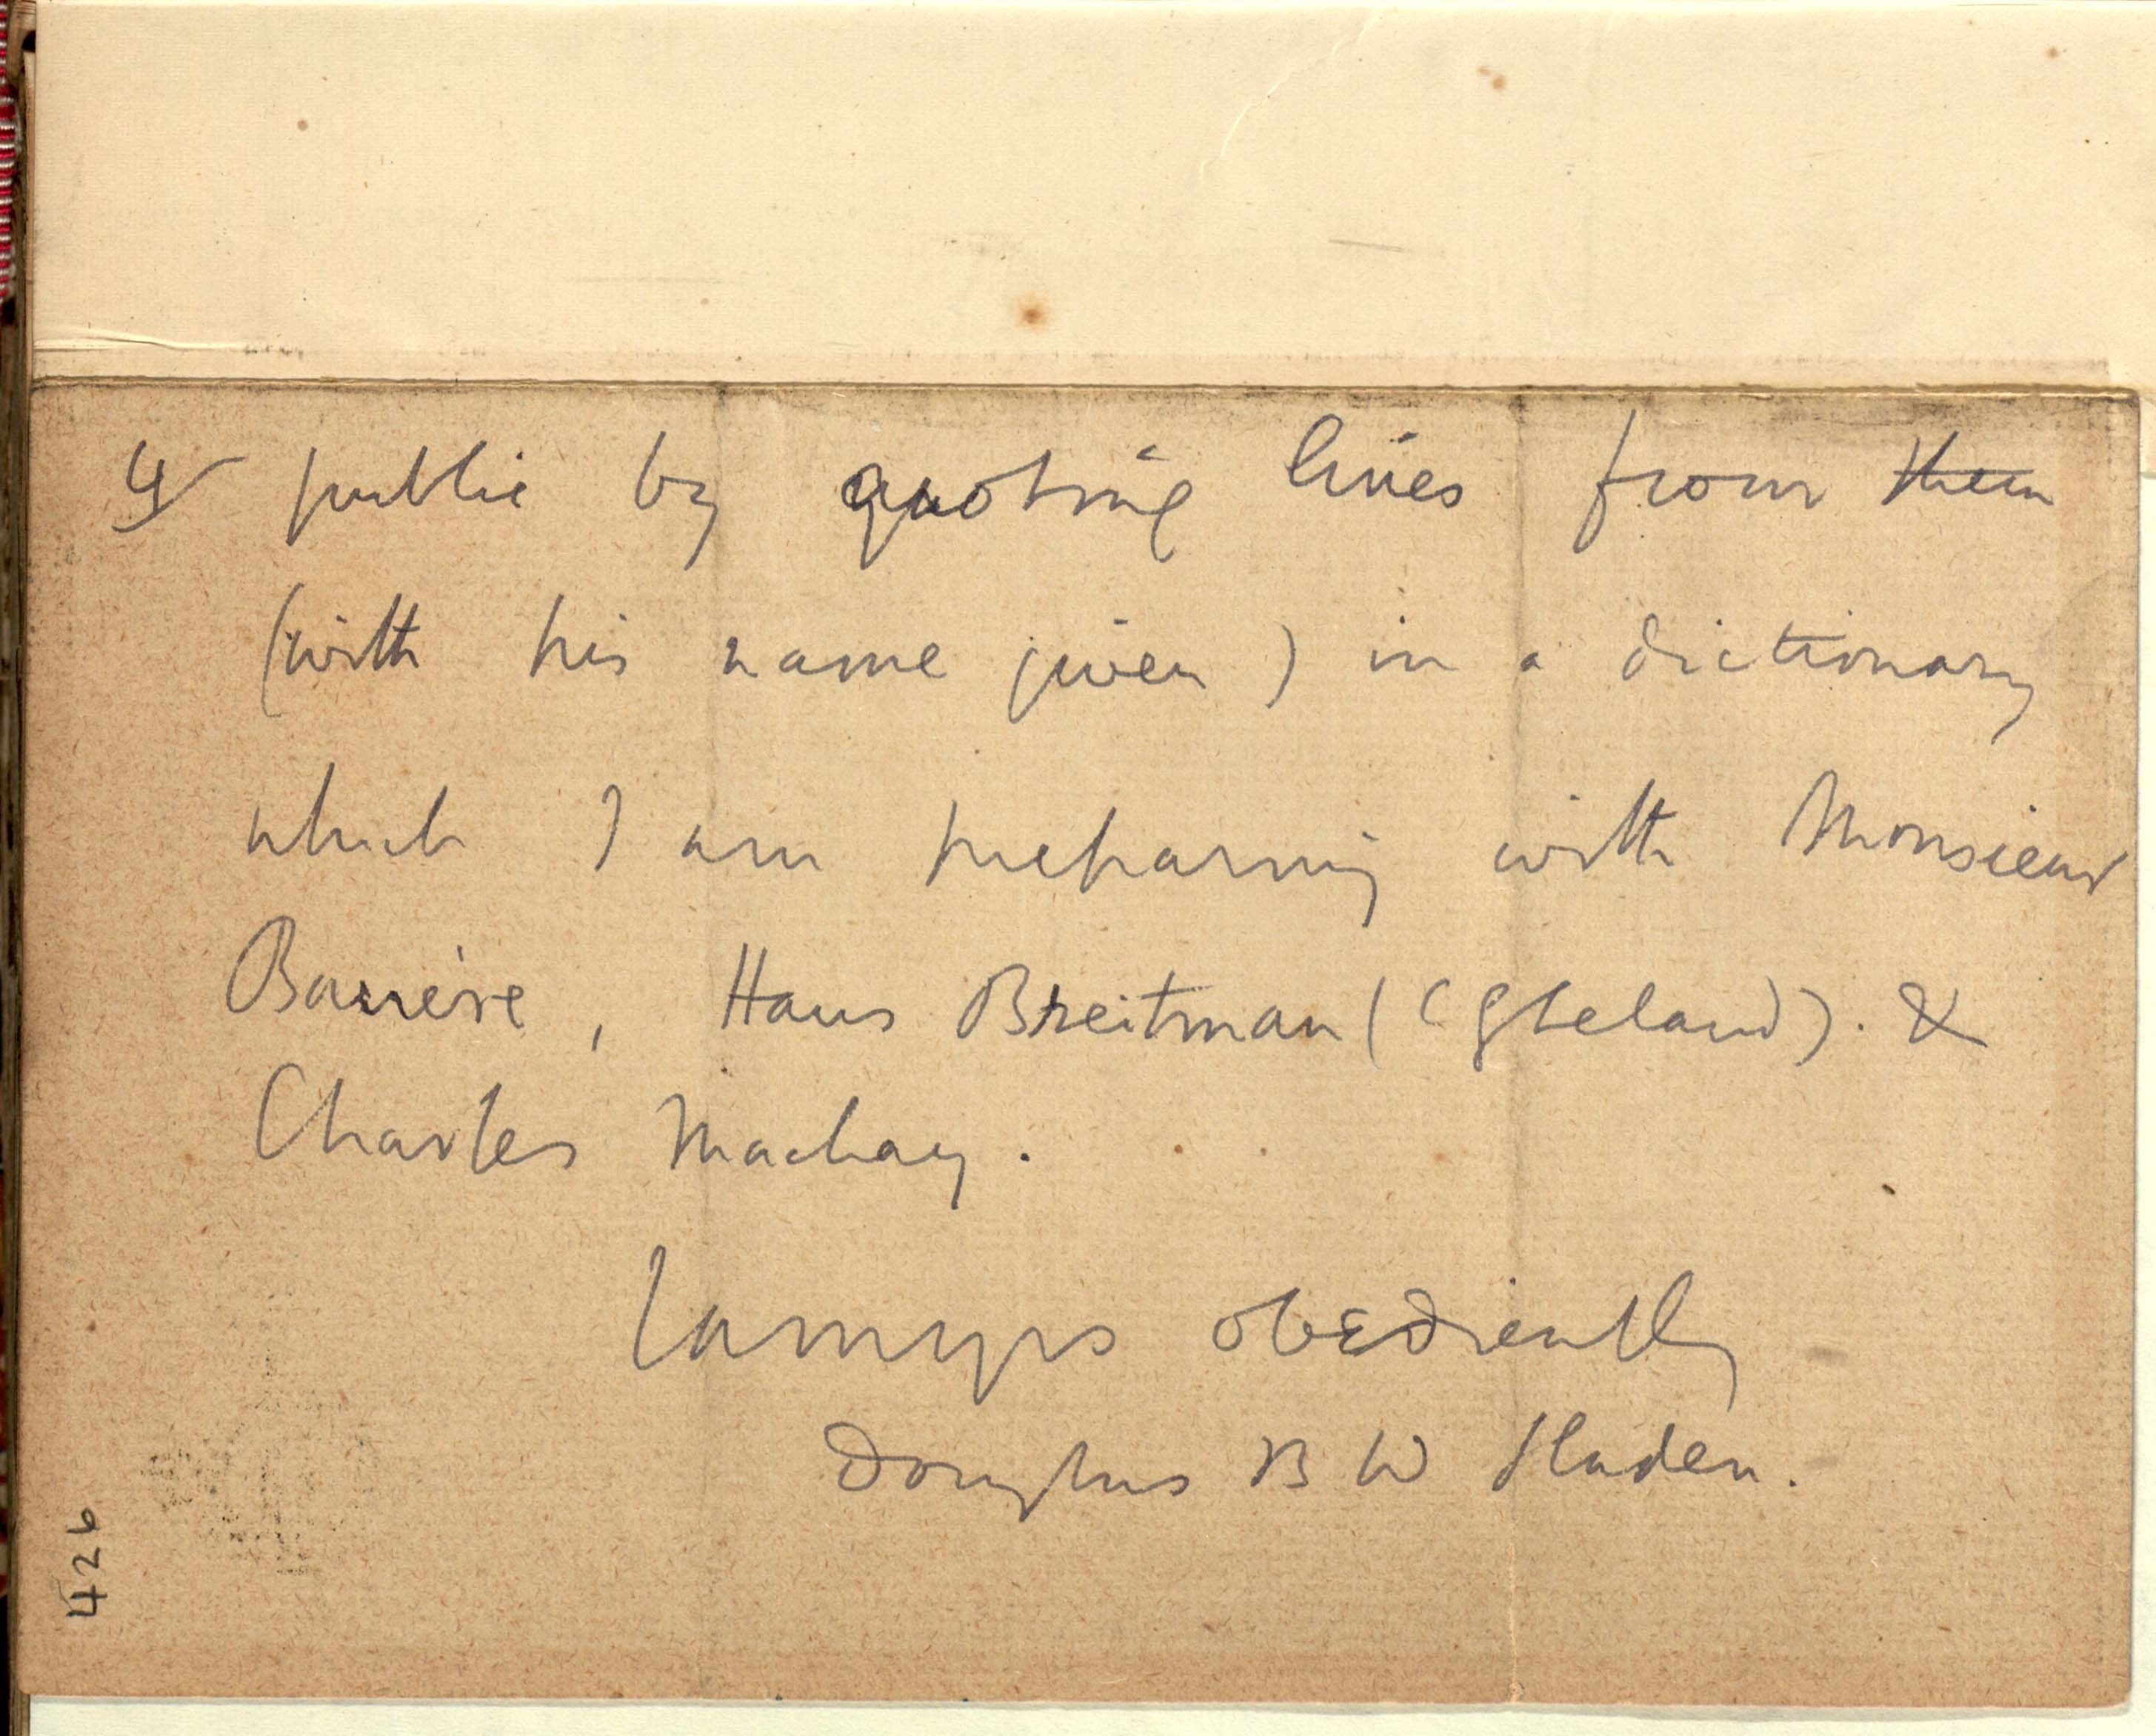 4 public by quoting lines from them
(with his name given) in a dictionary
which I am preparing with Monsieur
Barrère, Hans Breitman (CGLeland). &
Charles Mackay.
I am yrs obediently
Douglas B W Sladen.
426